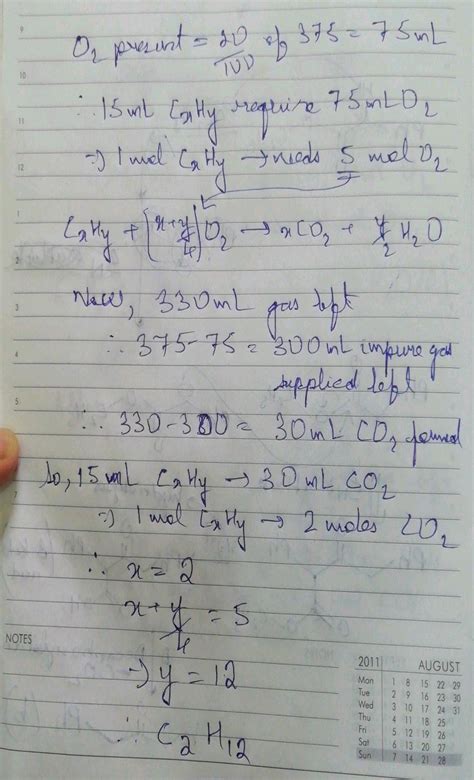 O2 present = 20/100 of 375 = 75mL
∴ 15mL CxHy require 75mL O2
⇒ 1 mol CxHy → needs 5 mol O2
CxHy + (x+y/4) O2 → xCO2 + y/2 H2O
Now, 330mL gas left
∴ 375-75 = 300mL impure gas
supplied left
∴ 330-300 = 30mL CO2 formed
So, 15mL CxHy → 30mL CO2
⇒ 1mol CxHy → 2 moles CO2
∴ x = 2
x+y/4 = 5
⇒ y = 12
∴ C2H12
NOTES
2011 AUGUST
Mon 1 8 15 22 29
Tue 2 9 16 23 30
Wed 3 10 17 24 31
Thu 4 11 18 25
Fri 5 12 19 26
Sat 6 13 20 27
Sun 7 14 21 28